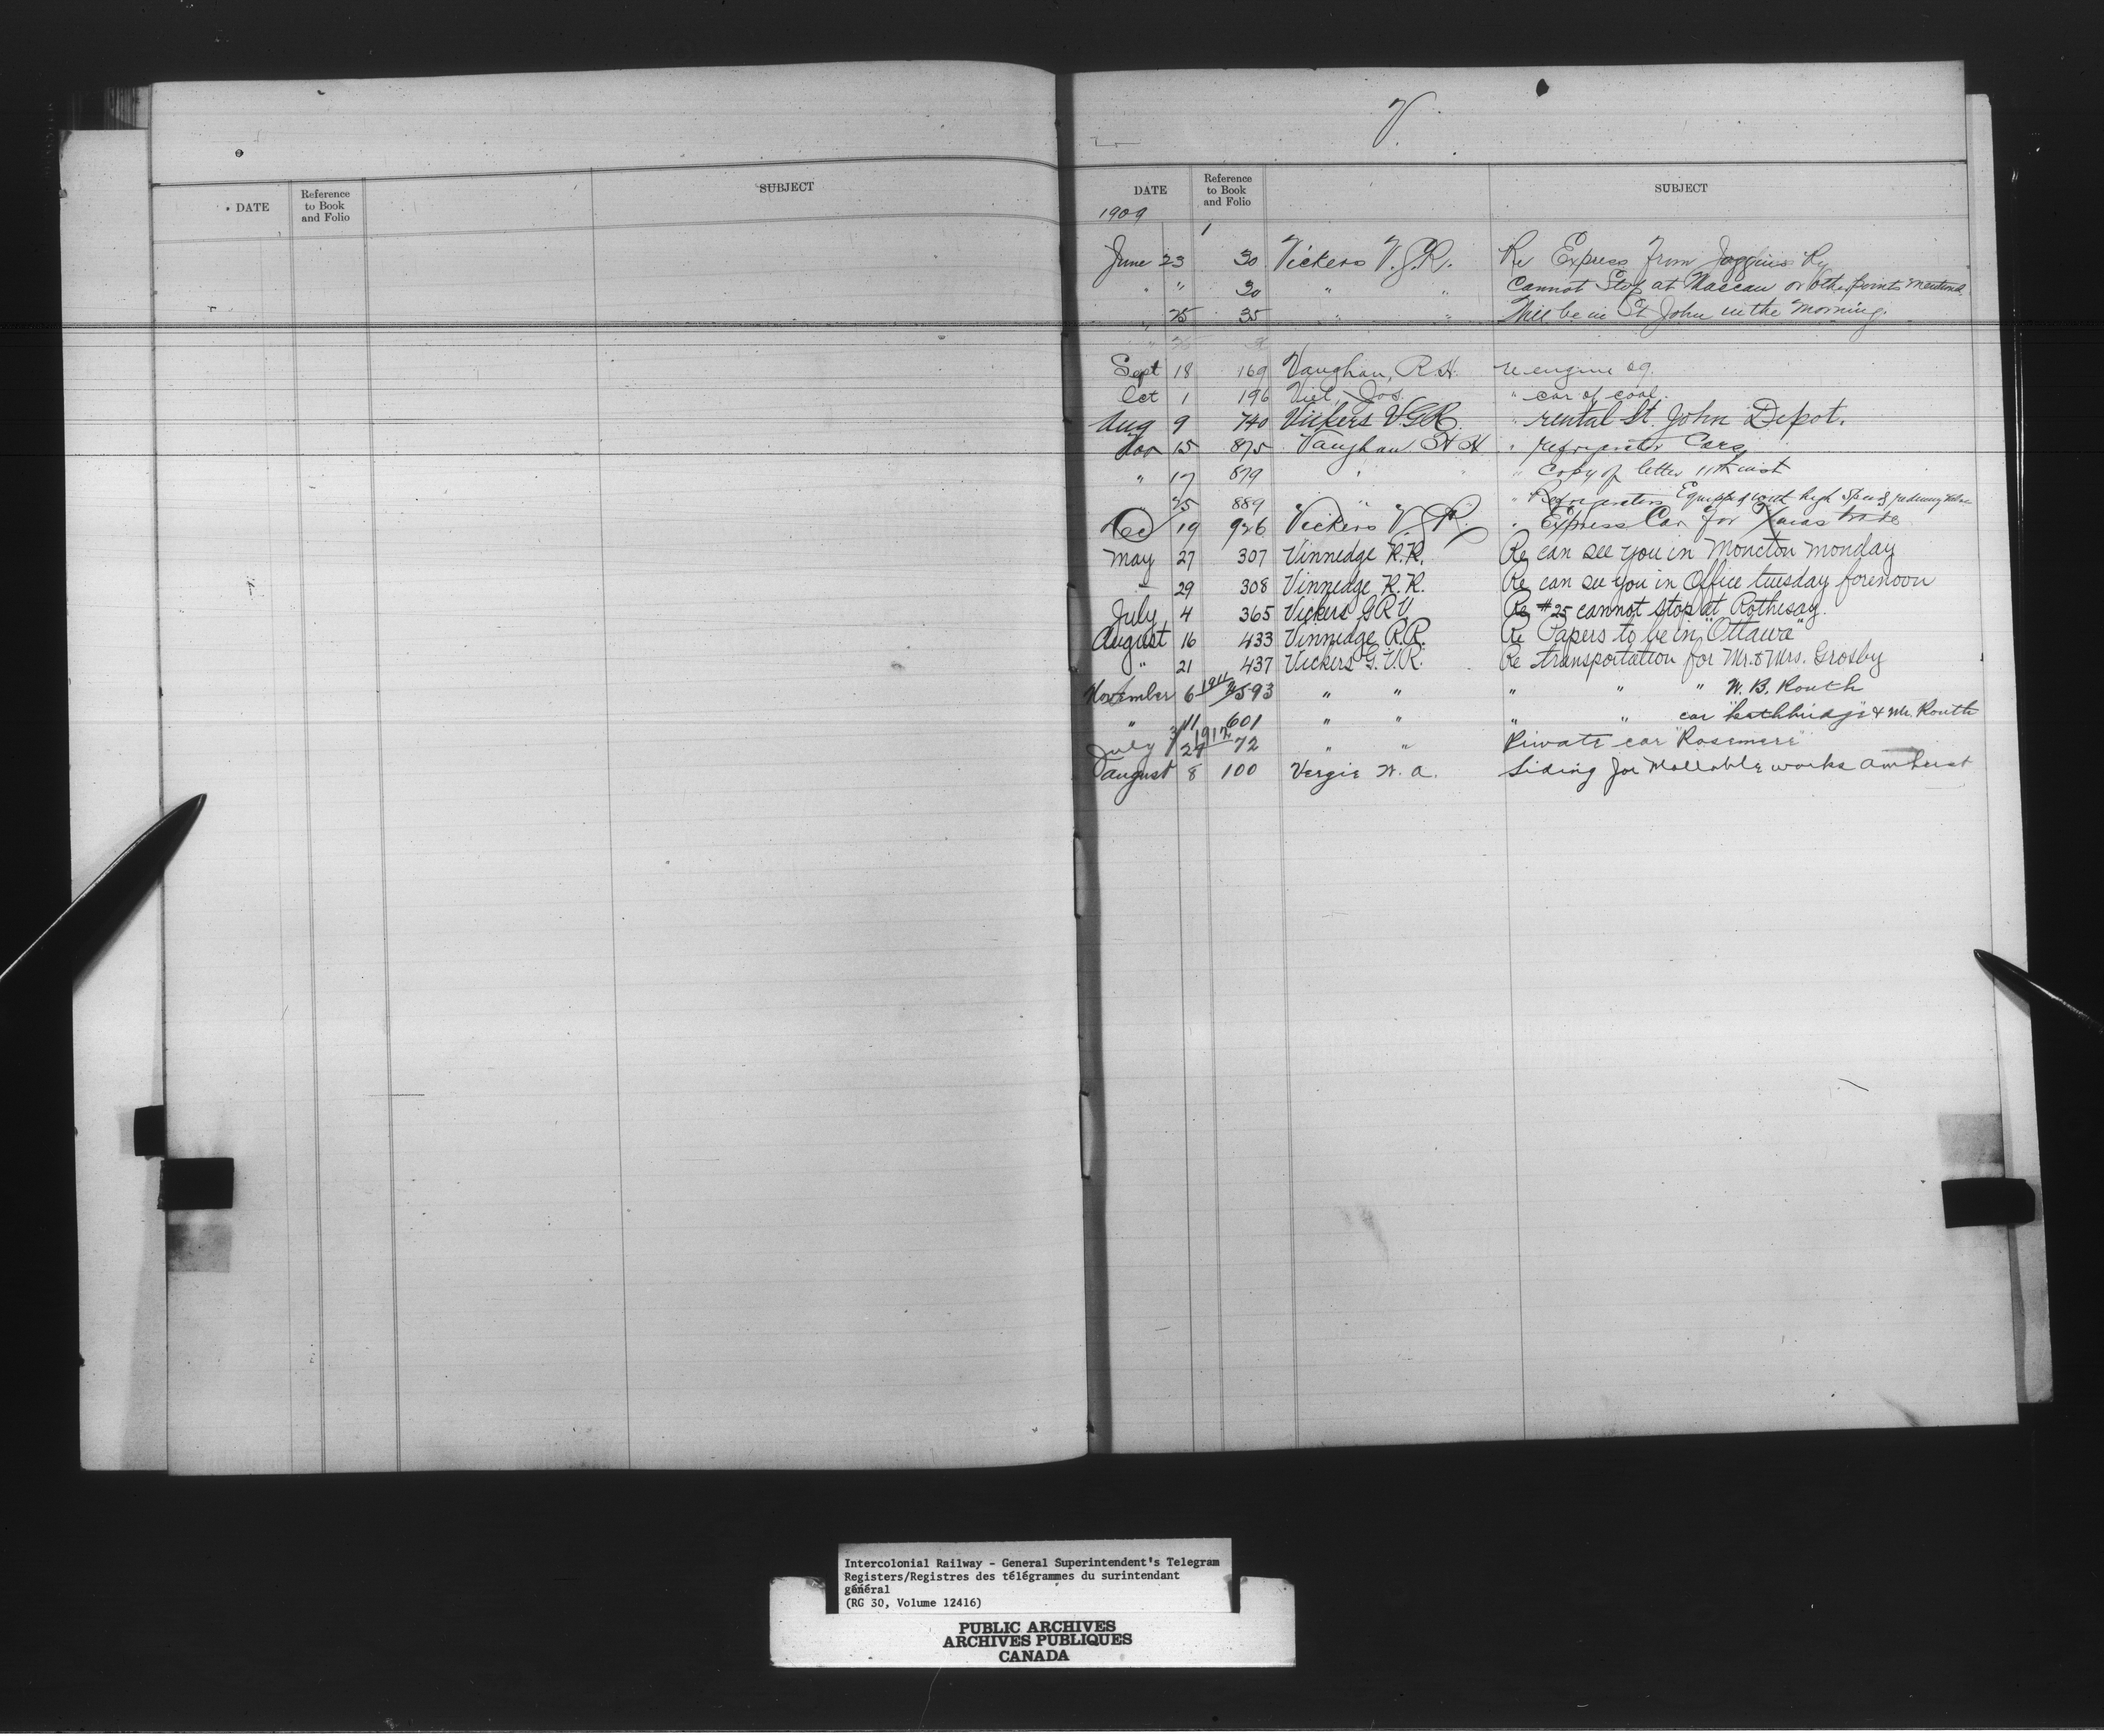 V.
DATE
Reference
to Book
and Folio
SUBJECT
DATE
Reference
to Book
and Folio
SUBJECT
1909
1
June 23 30 Vickers V.G.R. Re Express from Joggins Ry
" " 30 " " Cannot Stop at Maccan or other points mentioned
" 25 35 " " Will be in St John in the morning.
Sept 18 169 Vaughan, R.H. re engine 29.
Oct 1 196 Viel, Jos. " car of coal.
Aug 9 740 Vickers V.G.R. " rental St. John Depot.
Nov 15 875 Vaughan H H " refrigerator Cars
" 17 879 " " " Copy of letter 11th inst
25 889 " " Refrigerators Equipped with high speed reducing
Dec 19 926 Vickers V.G.R. " Express Car for Xmas trade
May 27 307 Vinnedge R.R. Re can see you in Moncton monday
" 29 308 Vinnedge R.R. Re can see you in Office tuesday forenoon
July 4 365 Vickers G R V Re #25 cannot stop at Rothesay.
August 16 433 Vinnedge R.R. Re Papers to be in "Ottawa"
" 21 437 Vickers G.V.R. Re transportation for Mr. & Mrs. Grosby
November 6 1911 593 " " " " " W. B. Routh
" 11 601 " " " " car & Mr. Routh
July 1912 72 " " Private car "Rosemere"
August 8 100 Vergie W. A. Siding for Mallable works Amherst
Intercolonial Railway - General Superintendent's Telegram
Registers/Registres des télégrammes du surintendant
général
(RG 30, Volume 12416)
PUBLIC ARCHIVES
ARCHIVES PUBLIQUES
CANADA